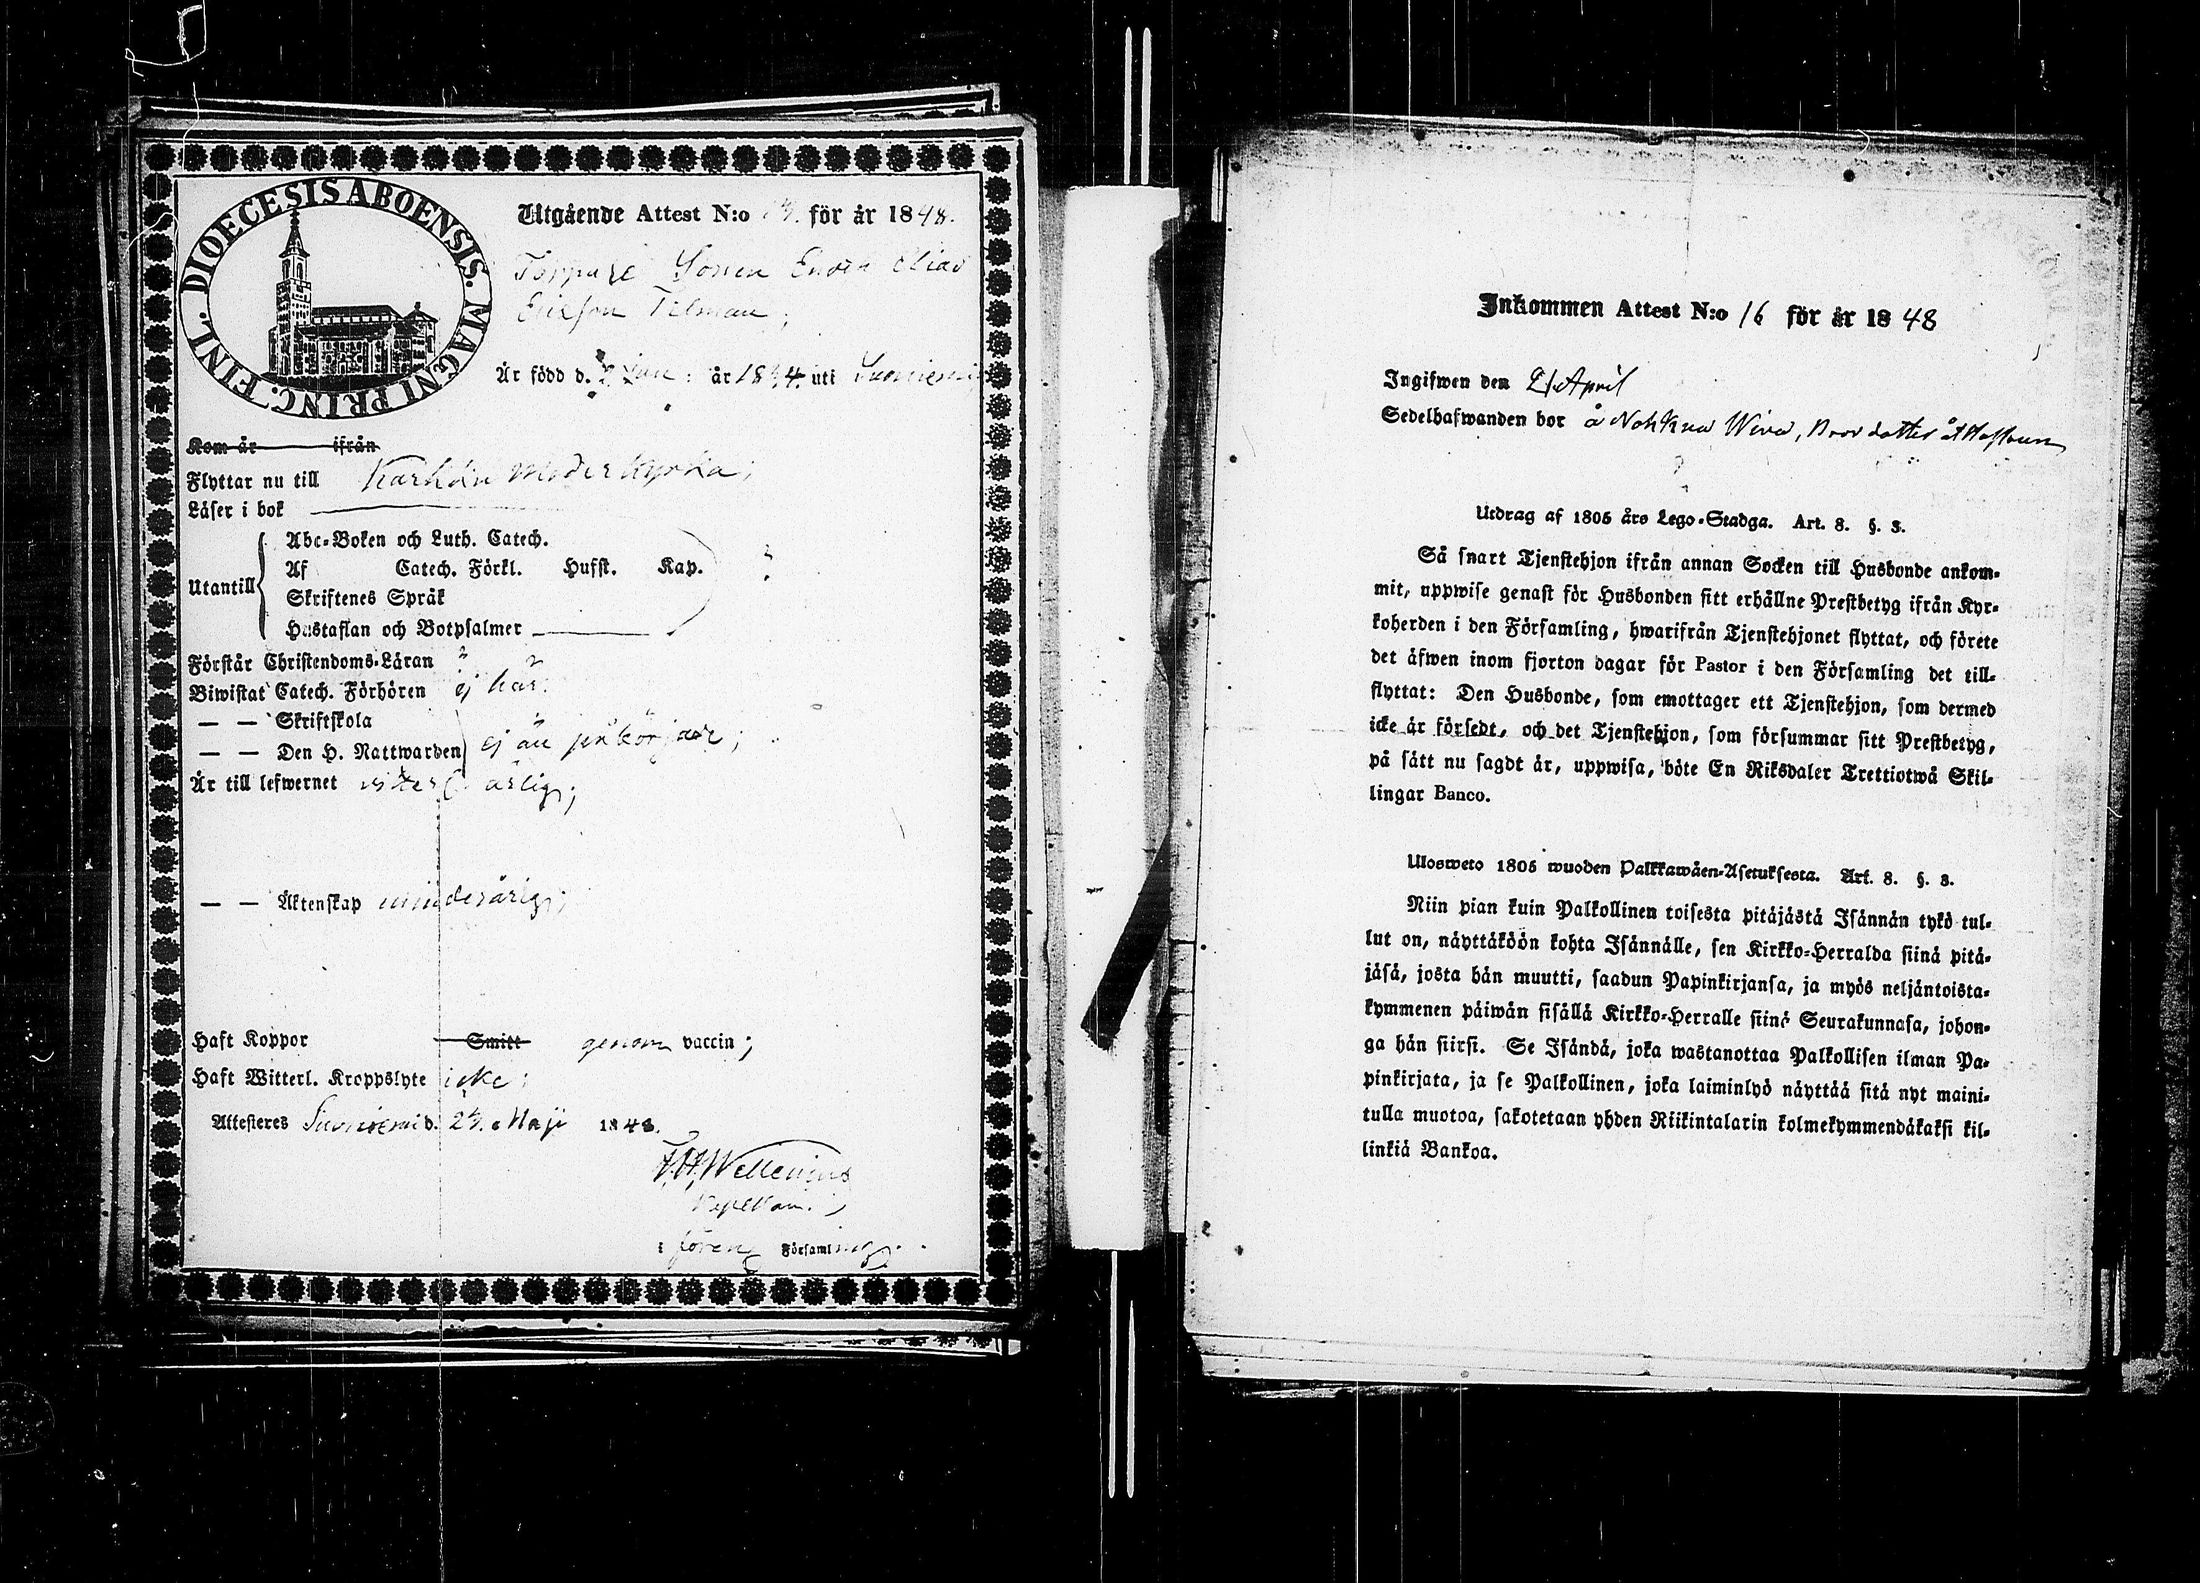 DIOECESIS ABOENSIS. MAGNI PRINC. FINL.
Utgående Attest N:o för år 1848.
Torpare Sonen Enoch Elias
Ericson Tilman;
Är född d. Jan: år 18 4. uti Suoniemi
Kom år ifrån
Flyttar nu till Karkku Moderkyrka;
Läser i bok
Utantill
Abc-Boken och Luth. Catech.
Af Catech. Förkl. Husst. Kap. ?
Skriftenes Språk
Hustaflan och Botpsalmer
Förstår Christendoms-Läran ?
Biwistat Catech. Förhören ej här.
— — Skriftskola
— — Den H. Nattwarden ej än
Är till lefwernet ärlig;
— — Äktenskap minderårig;
Haft Koppor Smitt genom vaccin;
Haft Witterl. Kroppslyte icke;
Attesteras Suoniemi d. 23. Maji 1848.
Wellenius
Kapellan.
i Församl
Inkommen Attest N:o 16 för år 1848
Ingifwen den 21 April
Sedelhafwanden bor å Nohkua
Utdrag af 1805 års Lego-Stadga. Art. 8. §. 3.
Så snart Tjenstehjon ifrån annan Socken till Husbonde ankom-
mit, uppwise genast för Husbonden sitt erhållne Prestbetyg ifrån Kyr-
koherden i den Församling, hwarifrån Tjenstehjonet flyttat, och förete
det äfwen inom fjorton dagar för Pastor i den Församling det till-
flyttat: Den Husbonde, som emottager ett Tjenstehjon, som dermed
icke är försedt, och det Tjenstehjon, som försummar sitt Prestbetyg,
på sätt nu sagdt är, uppwisa, böte En Riksdaler Trettiotwå Skil-
lingar Banco.
Ulosweto 1805 wuoden Palkkawäen-Asetuksesta. Art. 8. §. 3.
Niin pian kuin Palkollinen toisesta pitäjästä Isännän tykö tul-
lut on, näyttäköön kohta Isännälle, sen Kirkko-Herralda siinä pitä-
jäsä, josta hän muutti, saadun Papinkirjansa, ja myös neljäntoista-
kymmenen päiwän sisällä Kirkko-Herralle siinä Seurakunnasa, johon-
ga hän siirsi. Se Isändä, joka wastanottaa Palkollisen ilman Pa-
pinkirjata, ja se Palkollinen, joka laiminlyö näyttää sitä nyt maini-
tulla muotoa, sakotetaan yhden Riikintalarin kolmekymmendäkaksi kil-
linkiä Bankoa.